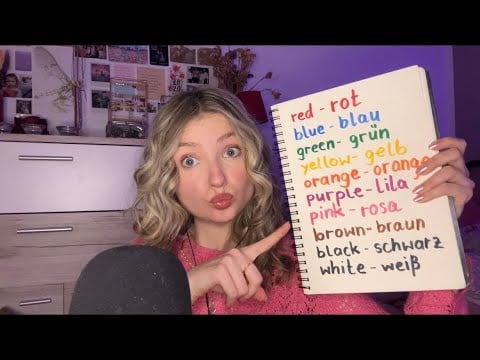 red - rot
blue - blau
green - grün
yellow - gelb
orange - orange
purple - lila
pink - rosa
brown - braun
black - schwarz
white - weiß